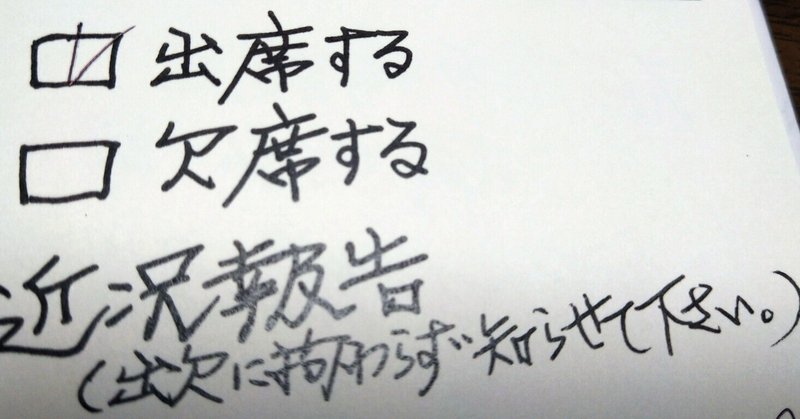 出席する
欠席する
近況報告
(出欠に拘わらず知らせて下さい。)